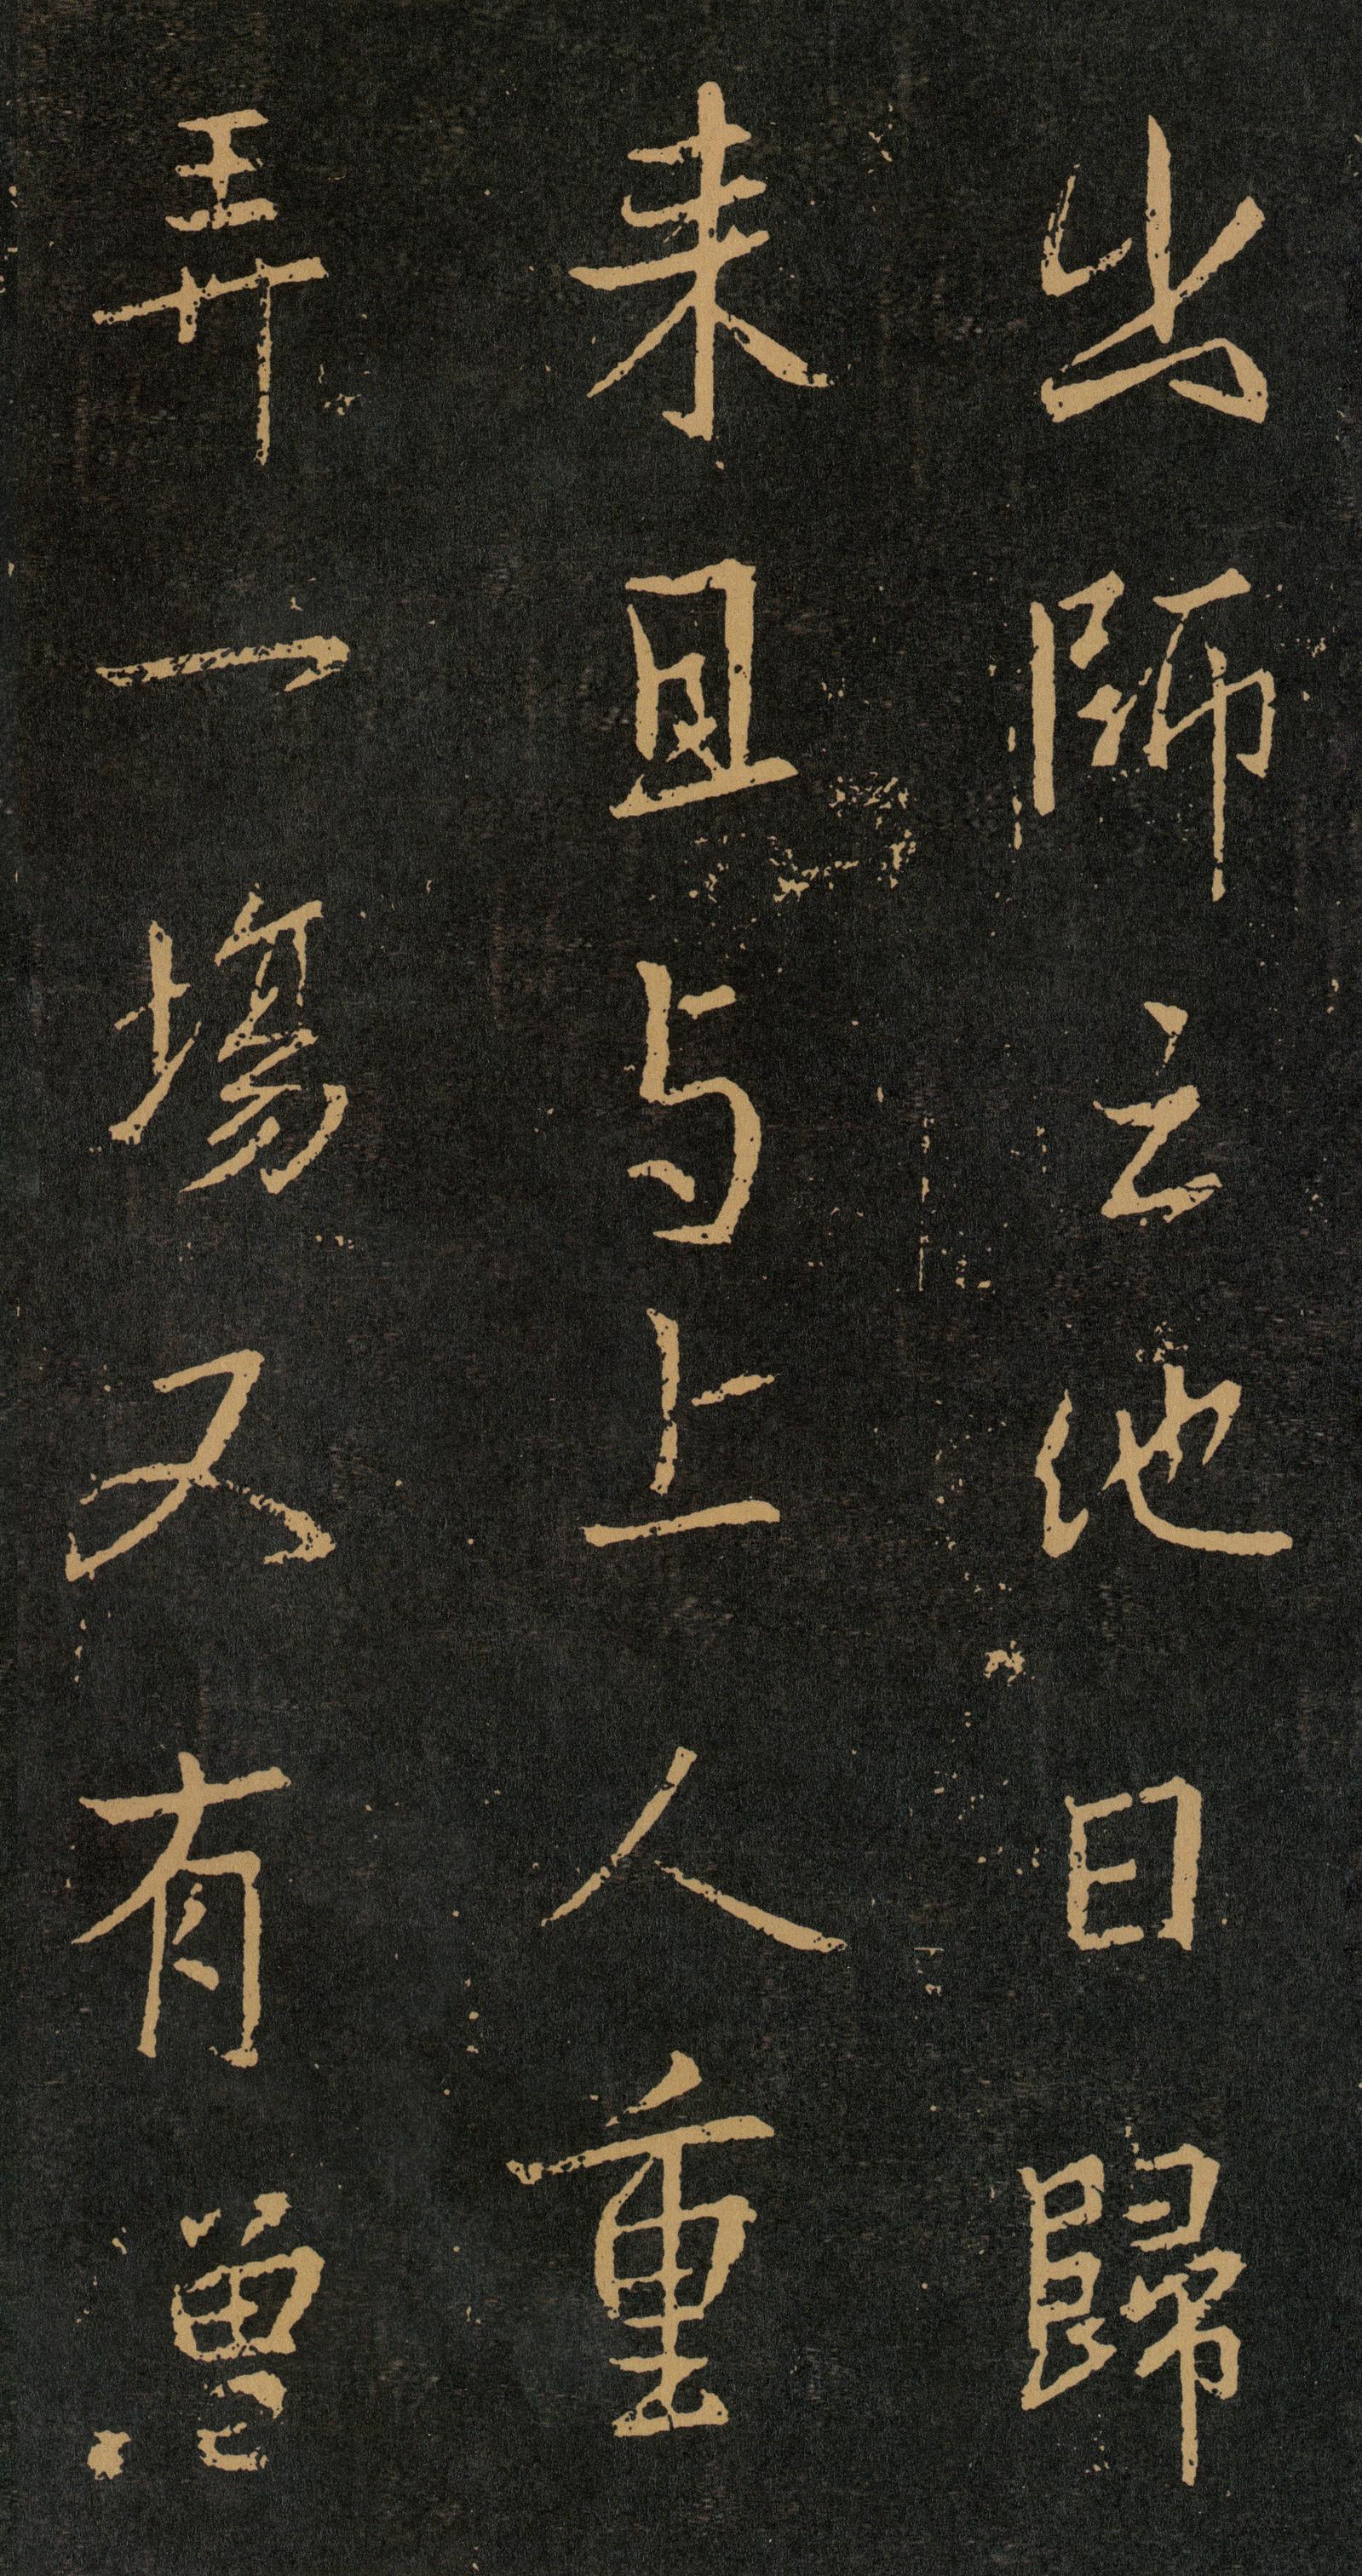 出師云他日歸
来且与上人重
弄一塲又有曽